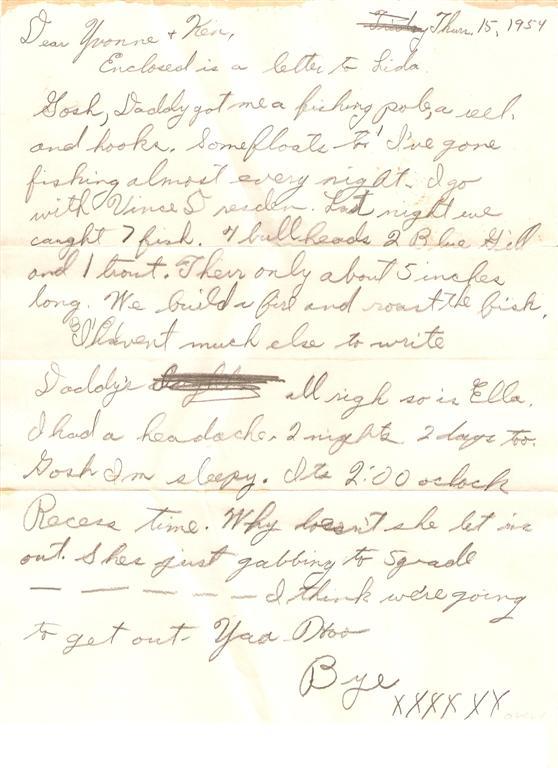 Thurs. 15, 1954
Dear Yvonne + Ken,
Enclosed is a letter to Lida.
Gosh, Daddy got me a fishing pole, a reel
and hooks. Some floats to' I've gone
fishing almost every night. I go
with Vince Last night we
caught 7 fish. 4 bullheads 2 Blue Gill
and 1 trout. Their only about 5 inches
long. We build a fire and roast the fish.
I havent much else to write
Daddy's all righ so is Ella.
I had a headache. 2 nights 2 days too.
Gosh Im sleepy. Its 2:00 oclock
Recess time. Why doesn't she let us
out. Shes just gabbing to 5 grade
— — — — — — I think we're going
to get out- Yaa
Bye
XXXX XX
over